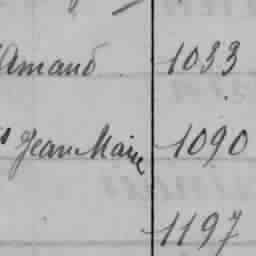 Amand 1033
Jean Marie 1090
1197